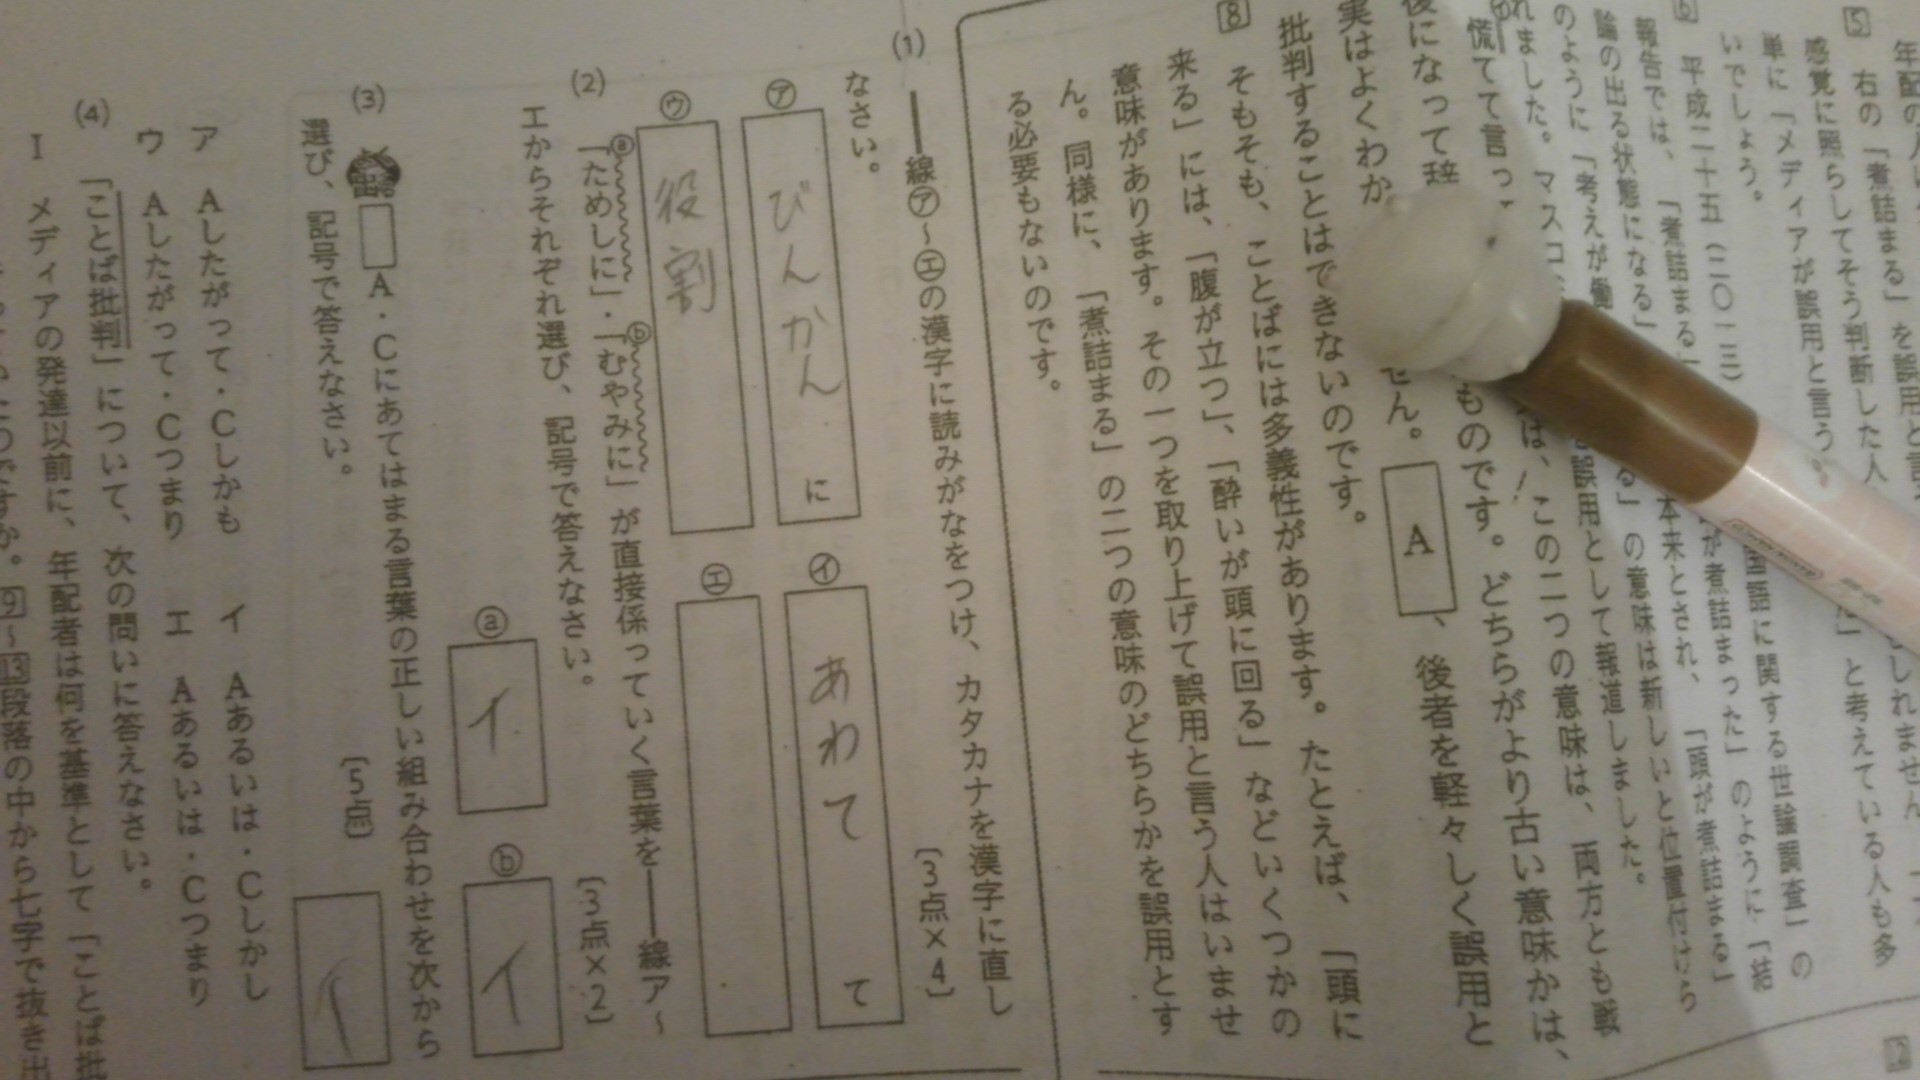 年配の
5
右の「煮詰まる」を誤用と言
感覚に照らしてそう判断した人
単に「メディアが誤用と言う
いでしょう。
と考えている人も多
6
平成二十五(二〇一三)
国語に関する世論調査」の
報告では、「煮詰まる」
が煮詰まった」のように「結
論の出る状態になる」
本来とされ、「頭が煮詰まる」
のように「考えが働
の意味は新しいと位置付けら
れました。マスコ
誤用として報道しました。
慌てて言っ
この二つの意味は、両方とも戦
後になって辞
ものです。どちらがより古い意味かは、
実はよくわか
せん。
A
、後者を軽々しく誤用と
批判することはできないのです。
8
そもそも、ことばには多義性があります。たとえば、「頭に
来る」には、「腹が立つ」、「酔いが頭に回る」などいくつかの
意味があります。その一つを取り上げて誤用と言う人はいませ
ん。同様に、「煮詰まる」の二つの意味のどちらかを誤用とす
る必要もないのです。
(1) ━━線㋐~㋓の漢字に読みがなをつけ、カタカナを漢字に直し
なさい。
〔3点×4〕
㋐ びんかん に
㋑ あわて て
㋒ 役割
㋓
(2) ⓐ「ためしに」・ⓑ「むやみに」が直接係っていく言葉を━━線ア~
エからそれぞれ選び、記号で答えなさい。
〔3点×2〕
ⓐ イ
ⓑ イ
(3) A・Cにあてはまる言葉の正しい組み合わせを次から
選び、記号で答えなさい。
〔5点〕
イ
ア Aしたがって・Cしかも
イ Aあるいは・Cしかし
ウ Aしたがって・Cつまり
エ Aあるいは・Cつまり
(4) 「ことば批判」について、次の問いに答えなさい。
Ⅰ メディアの発達以前に、年配者は何を基準として「ことば批
9~13段落の中から七字で抜き出